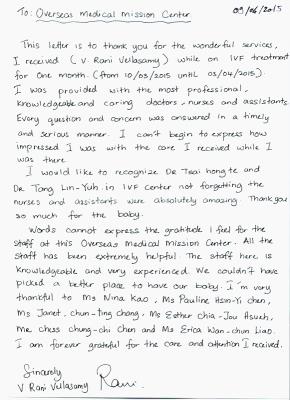 To: Overseas Medical Mission Center 09/04/2015
This letter is to thank you for the wonderful services,
I received (V. Rani Vellasamy) while on IVF treatment
for one month. (from 10/03/2015 until 03/04/2015).
I was provided with the most professional,
knowledgeable and caring doctors, nurses and assistants.
Every question and concern was answered in a timely
and serious manner. I can't begin to express how
impressed I was with the care I received while I
was there.
I would like to recognize Dr Tsai hong te and
Dr Tong Lin-Yuh in IVF center not forgetting the
nurses and assistants were absolutely amazing. Thank you
so much for the baby.
Words cannot express the gratitude I feel for the
staff at this Overseas Medical Mission Center. All the
staff has been extremely helpful. The staff here is
knowledgeable and very experienced. We couldn't have
picked a better place to have our baby. I'm very
thankful to Ms Nina Kao, Ms Pauline Hsin-Yi chen,
Ms Janet, chun-ting chang, Ms Esther Chia-Jou Hsueh,
Mr. Chess Chung-chi Chen and Ms Erica Wan-chun Liao.
I am forever grateful for the care and attention I received.
Sincerely
V Rani Vellasamy Rani.